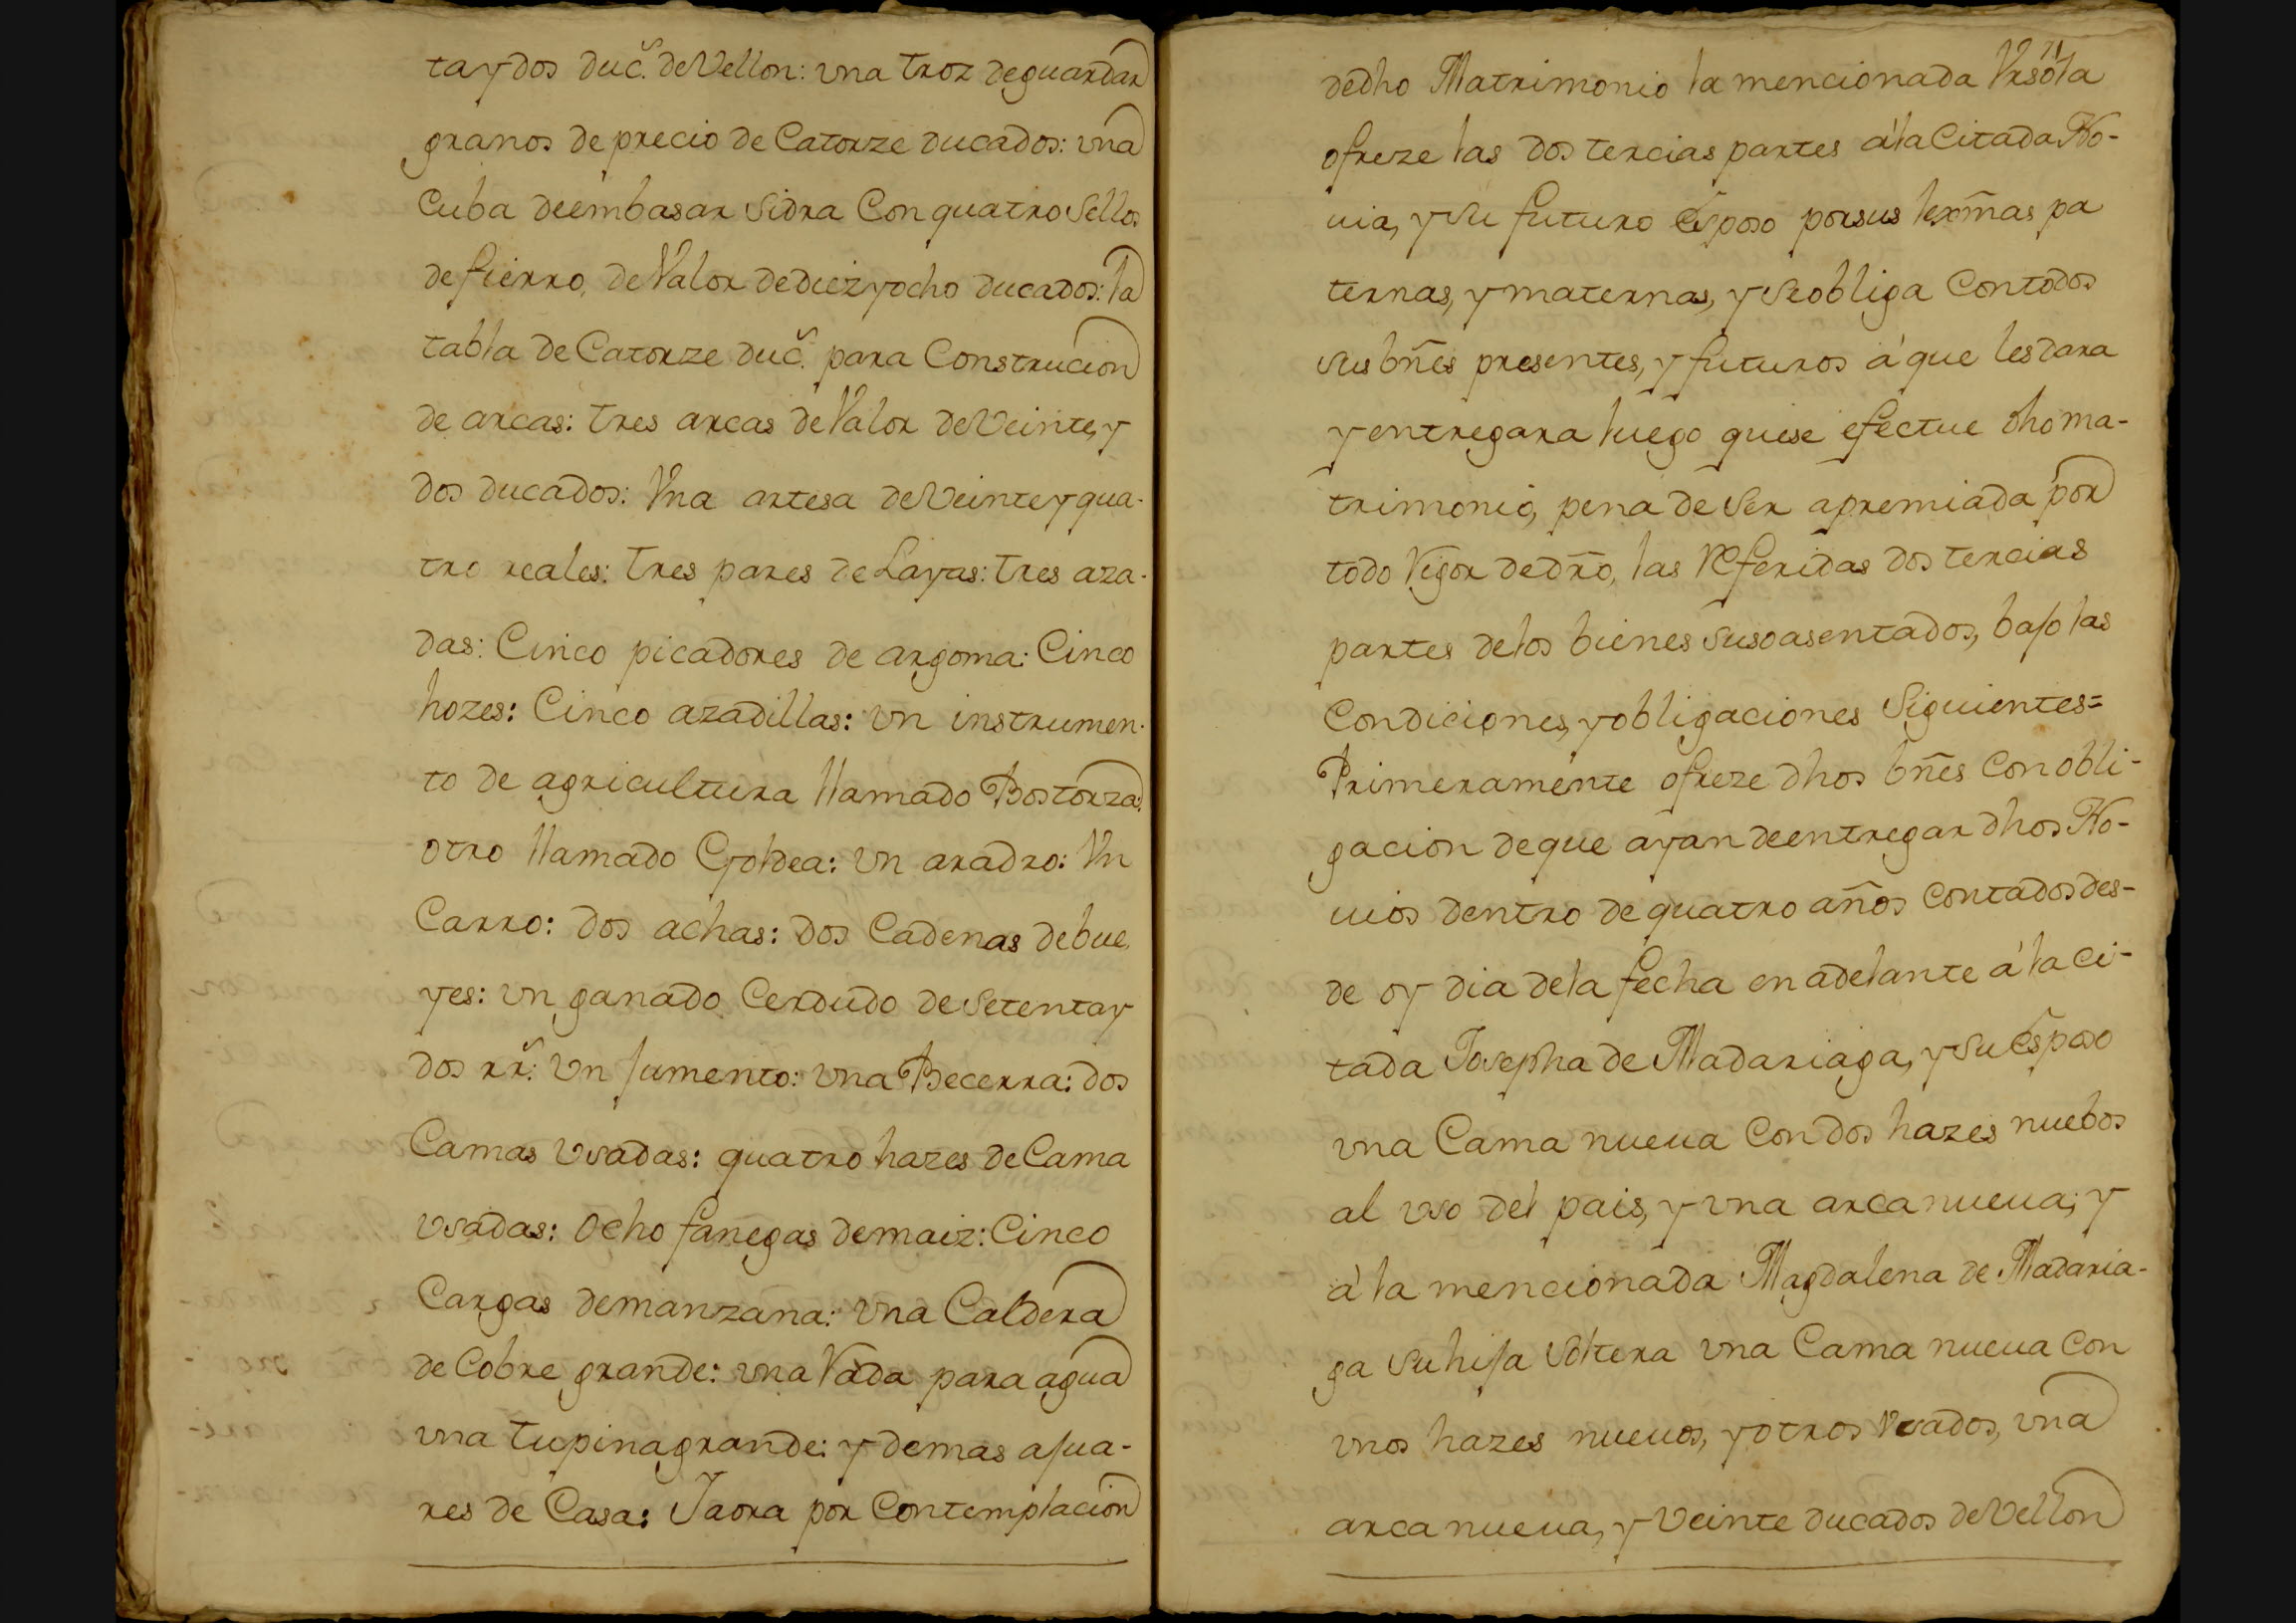 ta y dos duc.s de Vellon: vna troz de guardar
granos de precio de Catorze ducados: vna
Cuba de embasar Sidra Con quatro Sellos
de fierro, de Valor de diez y ocho ducados: la
tabla de Catorze duc.s para Construcion
de arcas: tres arcas de Valor de Veinte, y
dos ducados: Vna artesa de Veinte y qua-
tro reales: tres pares de Layas: tres aza-
das: Cinco picadores de argoma: Cinco
hozes: Cinco azadillas: vn instrumen-
to de agricultura llamado Bostorza:
otro llamado Goldea: vn aradro: Vn
Carro: dos achas: dos Cadenas de bue
yes: vn ganado Cerdudo de Setenta y
dos rr.s: Vn Jumento: vna Becerra: dos
Camas Vsadas: quatro hazes de Cama
Vsadas: Ocho fanegas de maiz: Cinco
Cargas de manzana: vna Caldera
de Cobre grande: vna Vada para agua
vna tupina grande: y demas ajua-
res de Casa: Jaora por Contemplacion
71
de dho Matrimonio la mencionada Vrsola
ofreze las dos tercias partes a la Citada No-
uia, y su futuro esposo por sus lexmas pa
ternas, y maternas, y se obliga Con todos
sus bñes presentes, y futuros á que les dara
y entregara luego que se efectue dho ma-
trimonio, pena de ser apremiada por
todo Vigor de dro, las Referidas dos tercias
partes de los bienes Susoasentados, bajo las
Condiciones, y obligaciones Siguientes=
Primeramente ofreze dhos bñes Con obli-
gacion de que ayan de entregar dhos No-
uios dentro de quatro años Contados des-
de oy dia de la fecha en adelante á la Ci-
tada Josepha de Madariaga, y su esposo
vna Cama nueua Con dos hazes nuebos
al vso del pais, y vna arca nueua; y
á la mencionada Magdalena de Madaria-
ga su hija Soltera vna Cama nueua Con
vnos hazes nueuos, y otros Vsados, vna
arca nueua, y Veinte ducados de Vellon